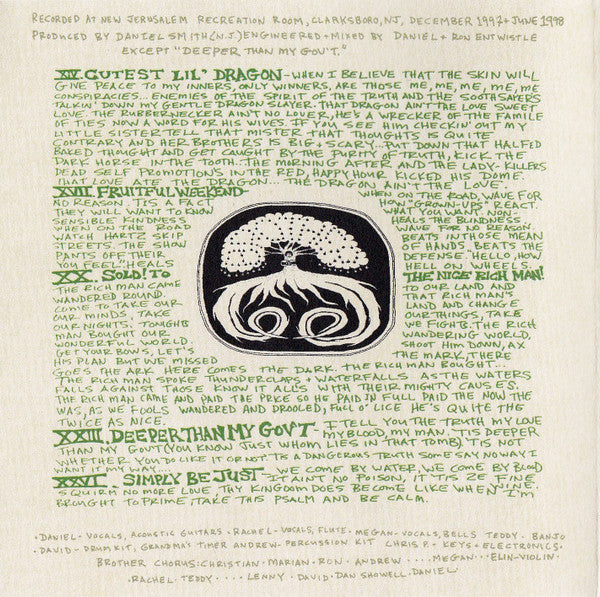 RECORDED AT NEW JERUSALEM RECREATION ROOM, CLARKSBORO, NJ, DECEMBER 1997 + JUNE 1998
PRODUCED BY DANIEL SMITH (N.J) ENGINEERED + MIXED BY DANIEL + RON ENTWISTLE
EXCEPT "DEEPER THAN MY GOV'T."
XIV. CUTEST LIL' DRAGON - WHEN I BELIEVE THAT THE SKIN WILL
GIVE PEACE TO MY INNERS, ONLY WINNERS, ARE THOSE ME, ME, ME, ME, ME
CONSPIRACIES... ENEMIES OF THE SPIRIT OF THE TRUTH AND THE SOOTHSAYERS
TALKIN' DOWN MY GENTLE DRAGON SLAYER. THAT DRAGON AIN'T THE LOVE SWEET
LOVE. THE RUBBERNECKER AIN'T NO LOVER, HE'S A WRECKER OF THE FAMILE
OF TIES NOW A WORD FOR HIS WIVES. IF YOU SEE HIM CHECKIN' OUT MY
LITTLE SISTER TELL THAT MISTER THAT THOUGHTS IS QUITE
CONTRARY AND HER BROTHERS IS BIG + SCARY. PUT DOWN THAT HALFED
BAKED THOUGHT AND GET CAUGHT BY THE PURITY OF TRUTH, KICK THE
DARK HORSE IN THE TOOTH. THE MORNING AFTER AND THE LADY-KILLERS
DEAD SELF PROMOTIONS IN THE RED, HAPPY HOUR KICKED HIS DOME.
THAT LOVE ATE THE DRAGON... THE DRAGON AIN'T THE LOVE.
XVII. FRUITFUL WEEKEND WHEN ON THE ROAD, WAVE FOR
NO REASON. TIS A FACT, HOW "GROWN-UPS" REACT.
THEY WILL WANT TO KNOW THAT YOU WANT NON-
SENSIBLE KINDNESS HEALS THE BLINDNESS
WHEN ON THE ROAD WAVE FOR NO REASON.
WATCH HARTZ SKIP BEATS IN THOSE MEAN
STREETS. THE SHOW OF HANDS, BEATS THE
PANTS OFF THEIR DEFENSE. "HELLO, HOW
YOU FEEL" HEALS HELL ON WHEELS.
XX. SOLD! TO THE NICE RICH MAN!
THE RICH MAN CAME TO OUR LAND AND
WANDERED ROUND. THAT RICH MAN'S
COME TO TAKE OUR LAND AND CHANGE
OUR MINDS, TAKE OUR THINGS, TAKE
OUR NIGHTS. TONIGHT WE FIGHT. THE RICH
MAN BOUGHT OUR WANDERING WORLD,
WONDERFUL WORLD. SHOOT HIM DOWN, AX
GET YOUR BOWS, LET'S THE MARK, THERE
HIS PLAN BUT WE MISSED
GOES THE ARK HERE COMES THE DARK. THE RICH MAN BOUGHT...
THE RICH MAN SPOKE THUNDERCLAPS + WATERFALLS AS THE WATERS
FALLS AGAINST THOSE KNOW IT ALLS WITH THEIR MIGHTY CAUSES.
THE RICH MAN CAME AND PAID THE PRICE SO HE PAID IN FULL PAID THE NOW THE
WAS, AS WE FOOLS WANDERED AND DROOLED, FULL O' LICE HE'S QUITE THE
TWICE AS NICE.
XXIII. DEEPER THAN MY GOV'T - I TELL YOU THE TRUTH MY LOVE
MY BLOOD, MY MAN. 'TIS DEEPER
THAN MY GOV'T (YOU KNOW JUST WHOM LIES IN THAT TOMB) 'TIS NOT
WHETHER YOU DO LIKE IT OR NOT 'TIS A DANGEROUS TRUTH SOME SAY NO WAY I
WANT IT MY WAY...
XXVI. SIMPLY BE JUST - WE COME BY WATER, WE COME BY BLOOD
IT AIN'T NO POISON, IT 'TIS ZE FINE WINE.
SQUIRM NO MORE LOVE. THY KINGDOM DOES BE COME LIKE WHEN I'M
BROUGHT TO PRIME, TAKE THIS PSALM AND BE CALM.
DANIEL - VOCALS, ACOUSTIC GUITARS · RACHEL - VOCALS, FLUTE · MEGAN - VOCALS, BELLS TEDDY - BANJO
· DAVID - DRUM KIT, GRANDMA'S TIMER ANDREW - PERCUSSION KIT CHRIS P. - KEYS + ELECTRONICS ·
BROTHER CHORUS: CHRISTIAN · MARIAN · RON · ANDREW .... MEGAN ··· ELIN - VIOLIN ·
· RACHEL · TEDDY .... LENNY · DAVID · DAN SHOWELL, DANIEL